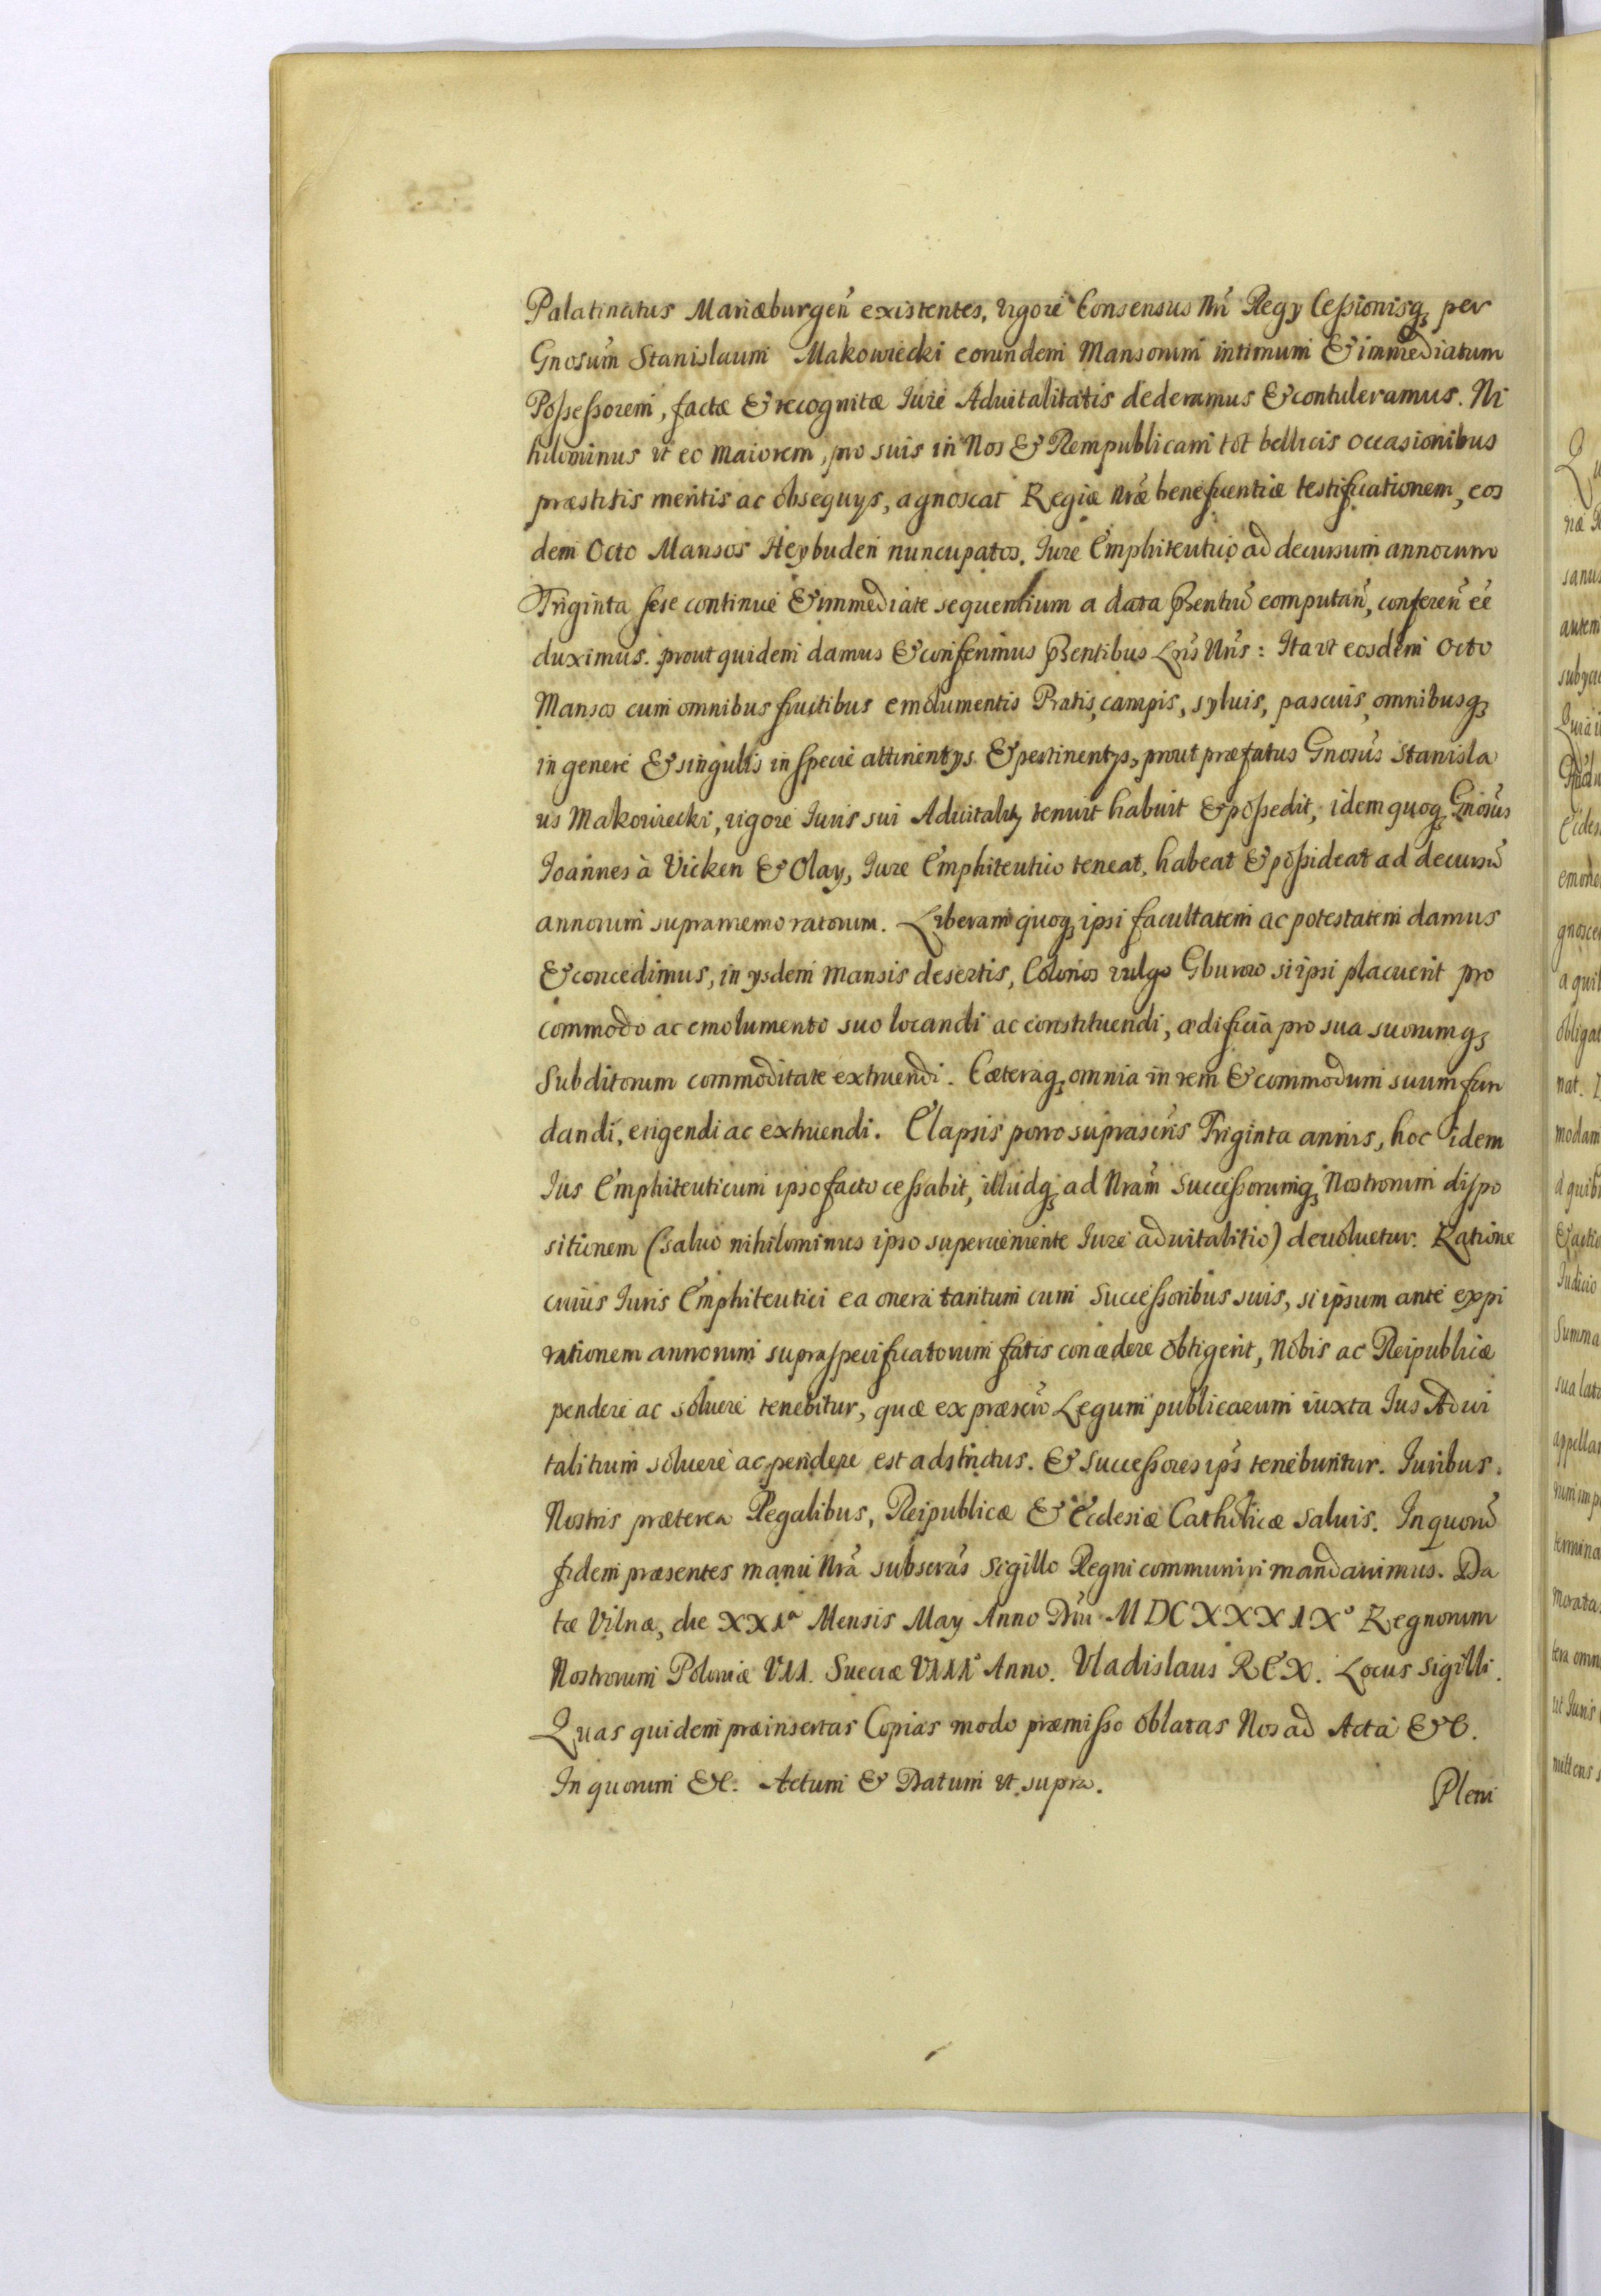 Palatinatus Mariæburgeñ existentes, vigore Consensus Nri Regy Cessionisq₃ per
Gnosum Stanislaum Makowiecki eorundem Mansorum intimum & immediatum
Possessorem, factæ & recognitæ Iure Aduitalitatis dederamus & contuleramus. Ni
hilominus vt eo maiorem, pro suis in Nos & Rempublicam tot bellicis occasionibus
præstitis meritis ac obsequys, agnoscat Regiæ Nræ beneficentiæ testificationem, eos
dem Octo Mansos Heybuden nuncupatos, Iure Emphiteutico ad decursum annorum
Triginta sese continue & immediate sequentium a data pñtiũ computañ, confereñ eē
duximus. prout quidem damus & conferimus pñtibus Lris Nris: Ita vt eosdem Octo
Mansos cum omnibus fructibus emolumentis Pratis, campis, syluis, pascuis, omnibusq₃
in genere & singulis in specie attinentys & pertinentys, prout præfatus Gnosus Stanisla
us Makowiecki, vigore Iuris sui Aduitalitij tenuit habuit & possedit, idem quoq₃ Gnosus
Ioannes à Vicken & Olay, Iure Emphiteutico teneat, habeat & possideat ad decursũ
annorum supramemoratorum. Liberam quoq₃ ipsi facultatem ac potestatem damus
& concedimus, in ysdem mansis desertis, Colonos vulgo Gburow si ipsi placuerit pro
commodo ac emolumento suo locandi ac constituendi, ædificia pro sua suorumq₃
Subditorum commoditate extruendi. Cæteraq₃ omnia in rem & commodum suum fun
dandi, erigendi ac extruendi. Elapsis porro suprascris Triginta annis, hoc idem
Ius Emphiteuticum ipso facto cessabit, illudq₃ ad Nram Successorumq₃ Nostrorum dispo
sitionem (saluo nihilominus ipso superueniente Iure aduitalitio) deuoluetur. Ratione
cuius Iuris Emphiteutici ea onera tantum cum Successoribus suis, si ipsum ante expi
rationem annorum supraspecificatorum fatis concedere obtigerit, Nobis ac Reipublicæ
pendere ac soluere tenebitur, quæ ex præscrõ Legum publicarum iuxta Ius Adui
talitium soluere ac pendere est adstrictus. & successores ips tenebuntur. Iuribus
Nostris præterea Regalibus, Reipublicæ & Ecclesiæ Catholicæ saluis. In quorũ
fidem præsentes manu Nra subscras Sigillo Regni communiri mandauimus. Da
tæ Vilnæ, die XXIª Mensis May Anno Dni MDCXXXIXº Regnorum
Nostrorum Poloniæ VII. Sueciæ VIIIº Anno. Vladislaus REX. Locus Sigilli.
Quas quidem præinsertas Copias modo præmisso oblatas Nos ad Acta &c.
In quorum &c. Actum & Datum vt supra.
Pleni